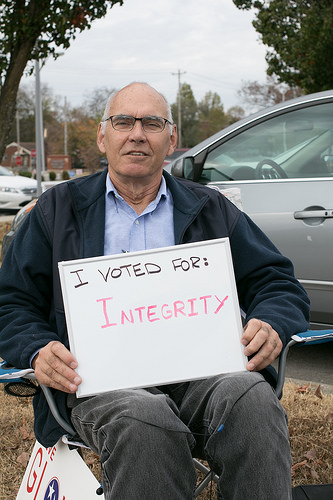 I VOTED FOR:
INTEGRITY
GI